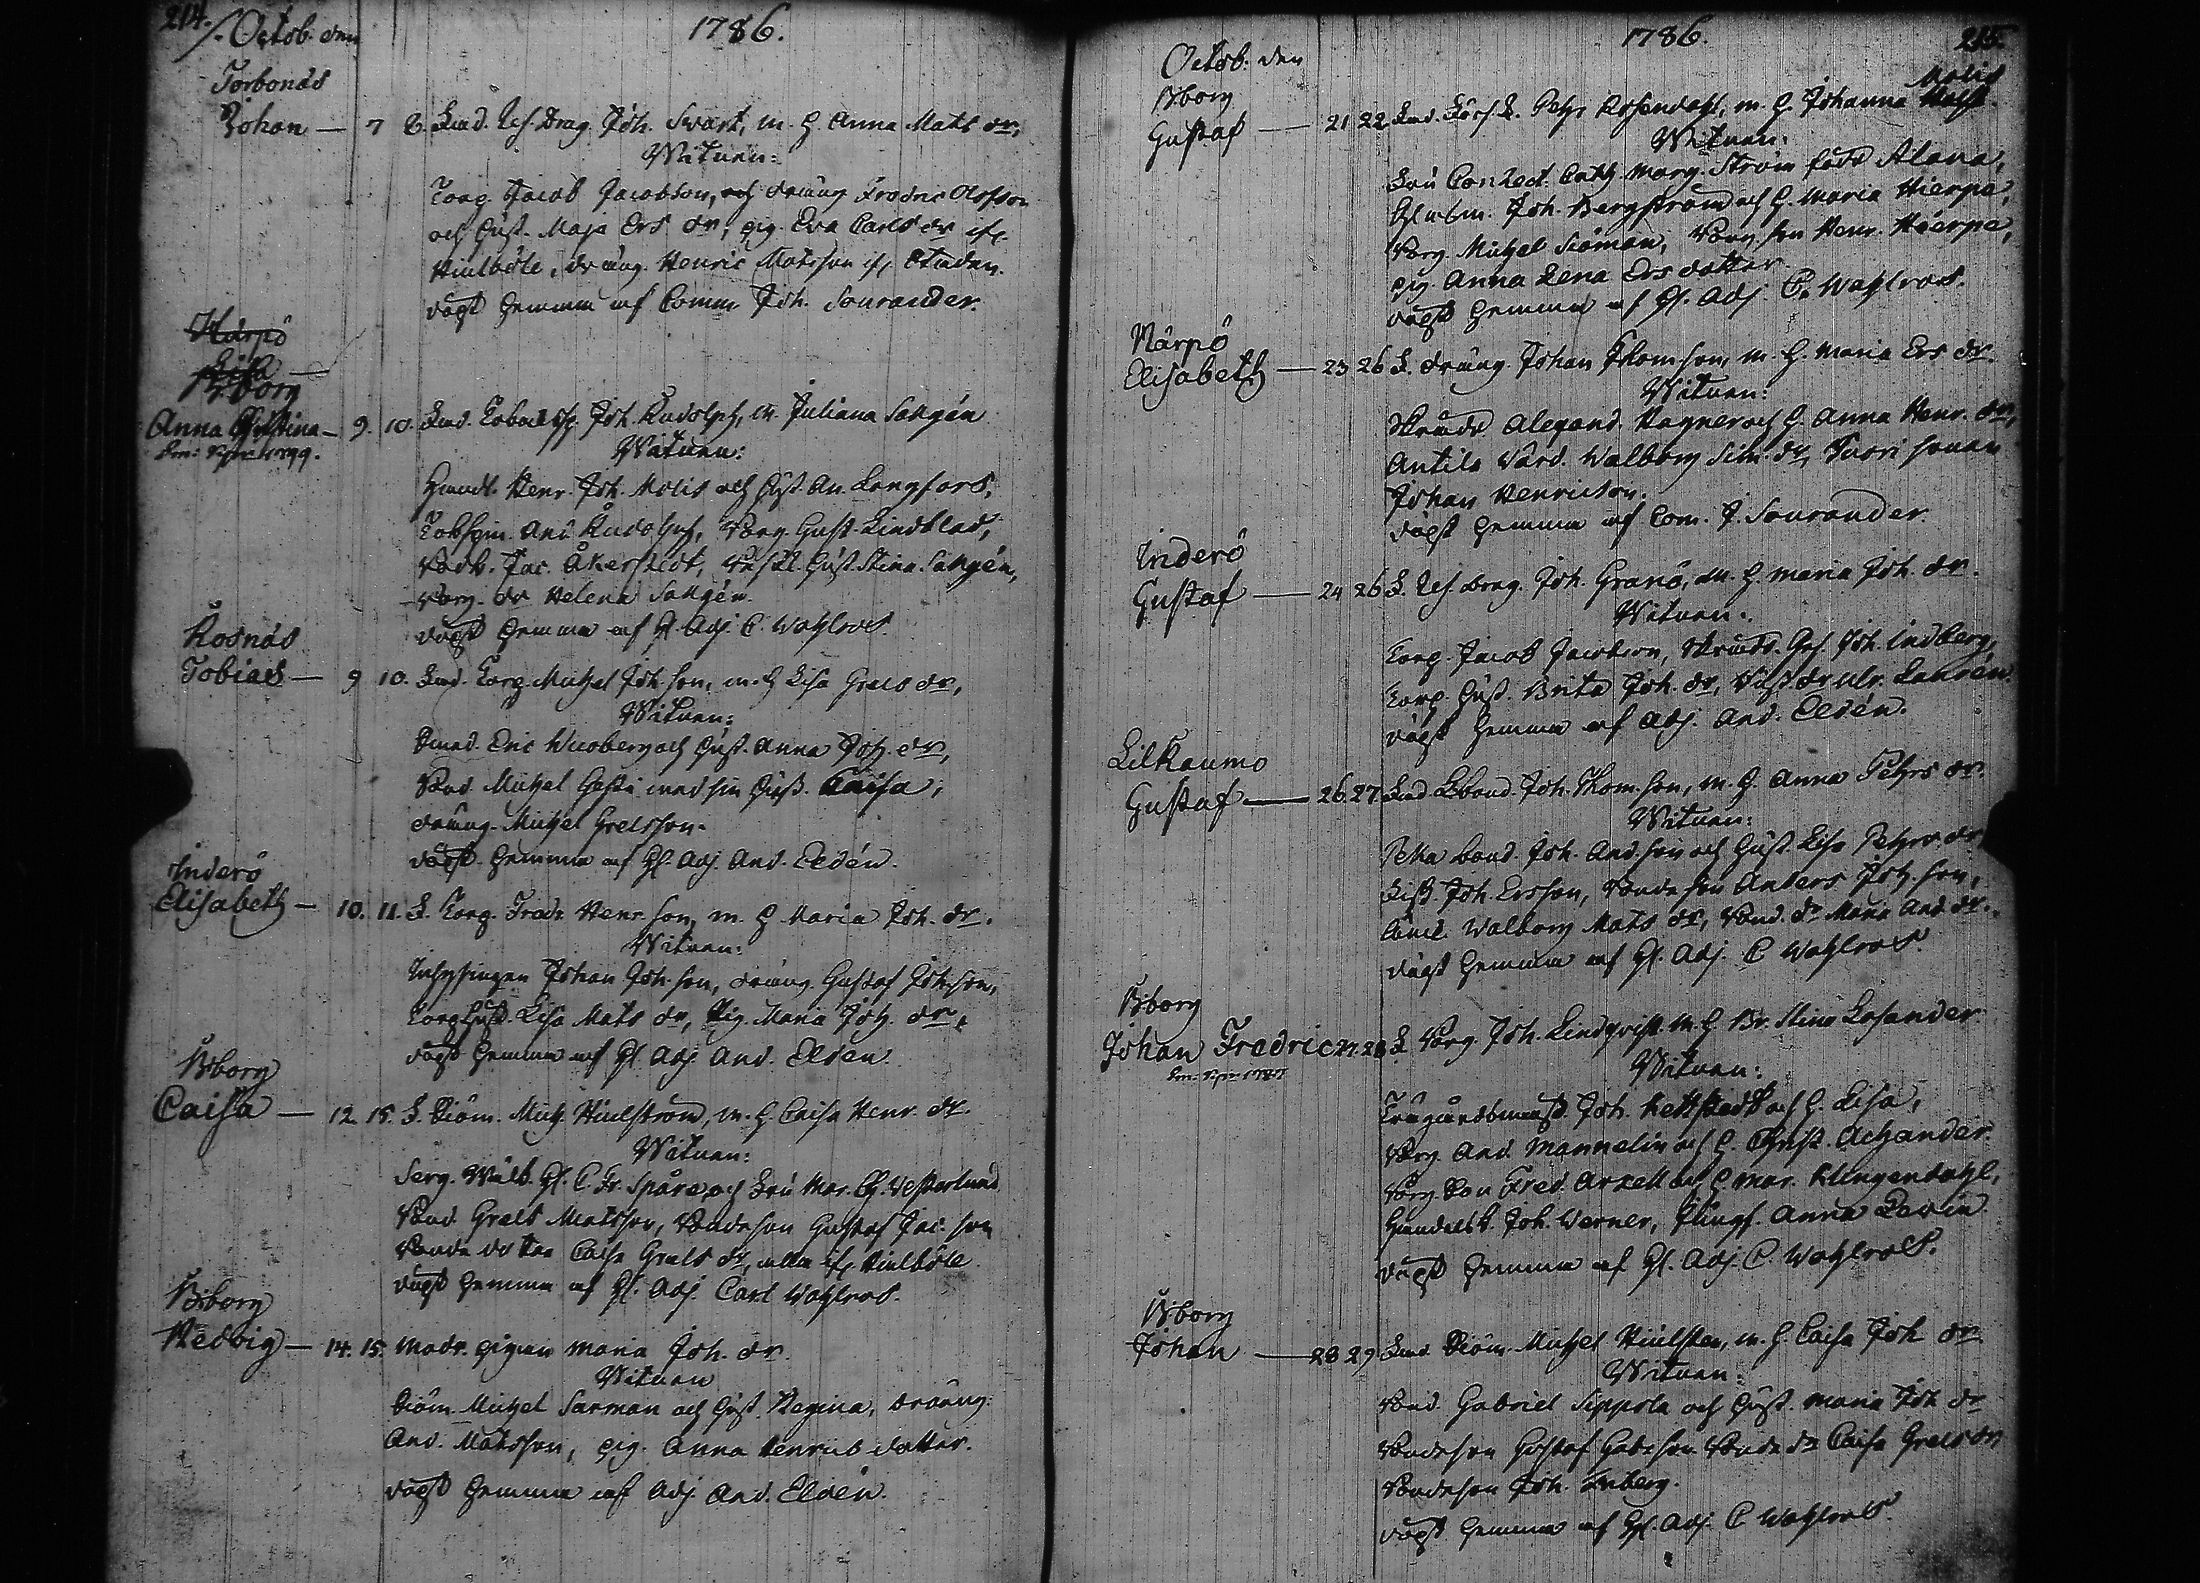 214.
Octob. den
1786.
Torbonäs
Johan — 7 8. Lds. Res. Drag. Joh. Svart, m. h. Anna Mats dr,
Witnen:
Torp. Jacob Jacobson, och dräng Fredric Olofson
och Hust. Maja Ers dr, pig. Eva Carls dr if.
Hiulböle, dräng. Henric Matsson if. Staden.
döpt hemma af Comm. Joh. Sourander.
Härpö
Lisa —
B:borg
Anna Christina — 9. 10. Joh. Rudolph, m. Juliana Sallgén
Witnen:
Handl. Henr. Joh. Molis och Hust. An. Longfors,
And. Rudolph, Borg. Gust. Lindblad,
Jac. Åkerstedt, Hust. Stina Sallgén,
Borg. dr Helena Sallgén.
döpt hemma af H. Adj. C. Wahlroos.
Rosnäs
Tobias — 9 10. Torp. Michel Joh. son, m. h Lisa Grels dr,
Witnen:
Eric Wicoberg och Hust. Anna Joh. dr,
Bond. Michel med sin Hust. Caisa,
dräng. Michel Grelsson.
döpt. hemma af H. Adj. And. Eldén.
Inderö
Elisabeth — 10. 11. L. Torp. Fredr. Henr. son, m. h Maria Joh. dr.
Witnen:
Inhysingen Johan Joh. son, dräng. Gustaf Joh. son,
Torp. Hust. Lisa Mats dr, Pig. Maria Joh. dr,
döpt hemma af H. Adj. And. Eldén.
B:borg
Caisa — 12 15. L. Siöm. Mich. Hiulström, m. h Caisa Henr. dr.
Witnen:
Serg. Wälb. H. C. Fr. Spåre och Fru Mar. Ch. Vesterlund
Bond. Grels Matsson, Bondeson Gustaf Jac. son
Bonde dotter Caisa Grels dr, alla if. Hiulböle
döpt hemma af H. Adj. Carl Wahlroos.
B:borg
Hedvig — 14. 15. Modr. pigan Maria Joh. dr.
Witnen
Siöm Michel Sarman och Hust. Regina, dräng:
And. Matsson, pig. Anna Henrics dotter.
döpt hemma af Adj. And. Eldén.
1786.
215.
Octob. den
B:borg
Gustaf — 21 22 Petr Rosendahl, m. h Johanna Molis
Witnen:
Fru Con Rect. Cath. Marg. Ström född Alana,
Joh. Bergström och h. Maria Hierpe,
Borg. Michel Siöman, Borg. son Henr. Hierpe,
pig. Anna Lena Ers dotter
döpt hemma af H. Adj. C. Wahlroos.
Närpö
Elisabeth — 23 26 L. dräng. Johan Thomson, m. h. Maria Ers dr
Witnen:
Skrädd. Alexand. Wagner och h. Anna Henr. dr,
Antila Wärd. Walborg Sim. dr, Tuori sonen
Johan Henricson.
döpt hemma af Com. J. Sourander.
Inderö
Gustaf — 24 26 L. Res. drag. Joh. Granö, m. h. Maria Joh. dr.
Witnen:
Torp. Jacob Jacobson, Skrädd. Ges. Joh. Indberg,
Torp. Hust. Brita Joh. dr, Ulr. Lauren
döpt hemma af Adj. And. Eldén.
Lilkaumo
Gustaf — 26. 27. Lds. Lbond. Joh. Thom. son, m. h. Anna Petrs dr.
Witnen:
Peka bond. Joh. And. son och Hust. Lisa Petrs dr
Joh. Ersson, Bonde son Anders Joh. son,
Walborg Mats dr, Bond. dr Maria And. dr.
döpt hemma af H. Adj. C Wahlroos
B:borg
Johan Fredric 27. 28 L. Borg. Joh. Lindqvist m. h Br. Stina Losander
Witnen:
Joh. Kettstedt och h. Lisa,
Borg. And. Mannelin och h. Christ. Achander
Borg. Son Fred. Arxell och h Mar. Klingendahl,
Joh. Werner, Jungf. Anna Levin
döpt hemma af H. Adj. C. Wahlroos.
B:borg
Johan — 28 29 Lds. Siöm. Michel Hiulsten, m. h Caisa Joh. dr
Witnen:
Bond. Gabriel Sippola och Hust. Maria Joh dr
Bondeson Gustaf Gabr. son Bonde dr Caisa Grels dr
Bondeson Joh. Enberg.
döpt hemma af H. Adj. C Wahlroos